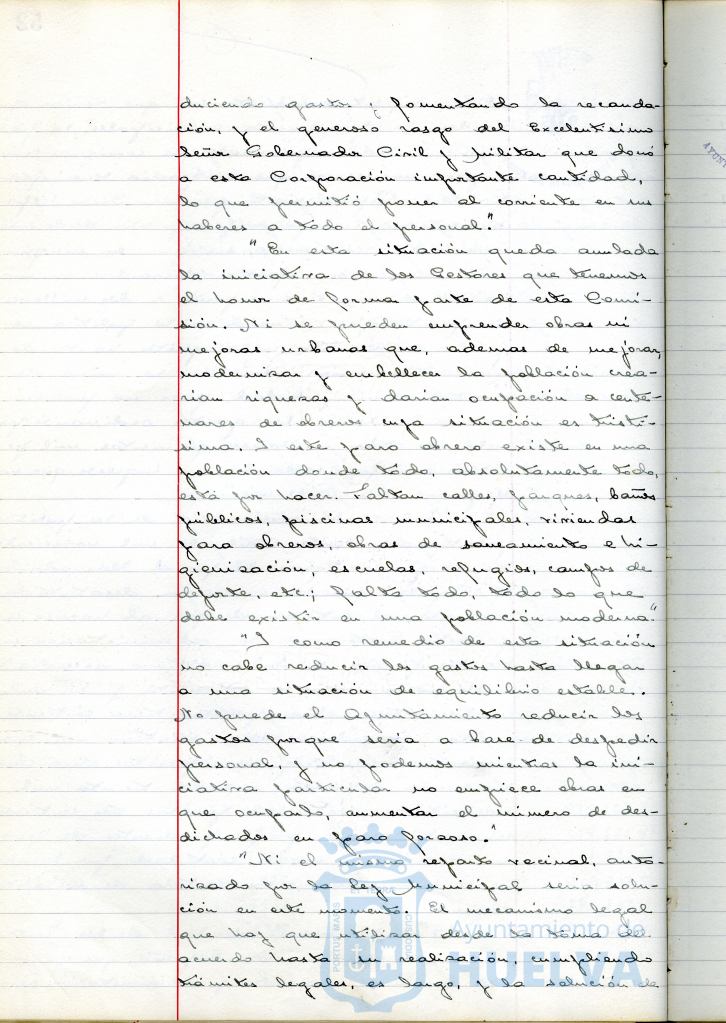 duciendo gastos y fomentando la recauda-
ción, y el generoso rasgo del Excelentísimo
Señor Gobernador Civil y Militar que donó
a esta Corporación importante cantidad,
lo que permitió poner al corriente en sus
haberes a todo el personal."
"En esta situación queda anulada
la iniciativa de los Gestores que tenemos
el honor de formar parte de esta Comi-
sión. Ni se pueden emprender obras ni
mejoras urbanas que, ademas de mejorar,
modernizar y embellecer la población crea-
rian riquezas y darian ocupación a cente-
nares de obreros cuya situación es tristi-
sima. Y este paro obrero existe en una
población donde todo, absolutamente todo,
está por hacer. Faltan calles, parques, baños
públicos, piscinas municipales, viviendas
para obreros, obras de saneamiento e hi-
gienización, escuelas, refugios, campos de
deporte, etc.; falta todo, todo lo que
debe existir en una población moderna."
"Y como remedio de esta situación
no cabe reducir los gastos hasta llegar
a una situación de equilibrio estable.
No puede el Ayuntamiento reducir los
gastos porque seria a base de despedir
personal, y no podemos mientras la ini-
ciativa particular no empiece obras en
que ocuparlo, aumentar el número de des-
dichados en paro forzoso."
"Ni el mismo reparto vecinal, auto-
rizado por la Ley Municipal seria solu-
ción en este momento. El mecanismo legal
que hay que utilizar desde la toma de
acuerdo hasta su realización, cumpliendo
trámites legales, es largo, y la solución de
Ayuntamiento de
HUELVA